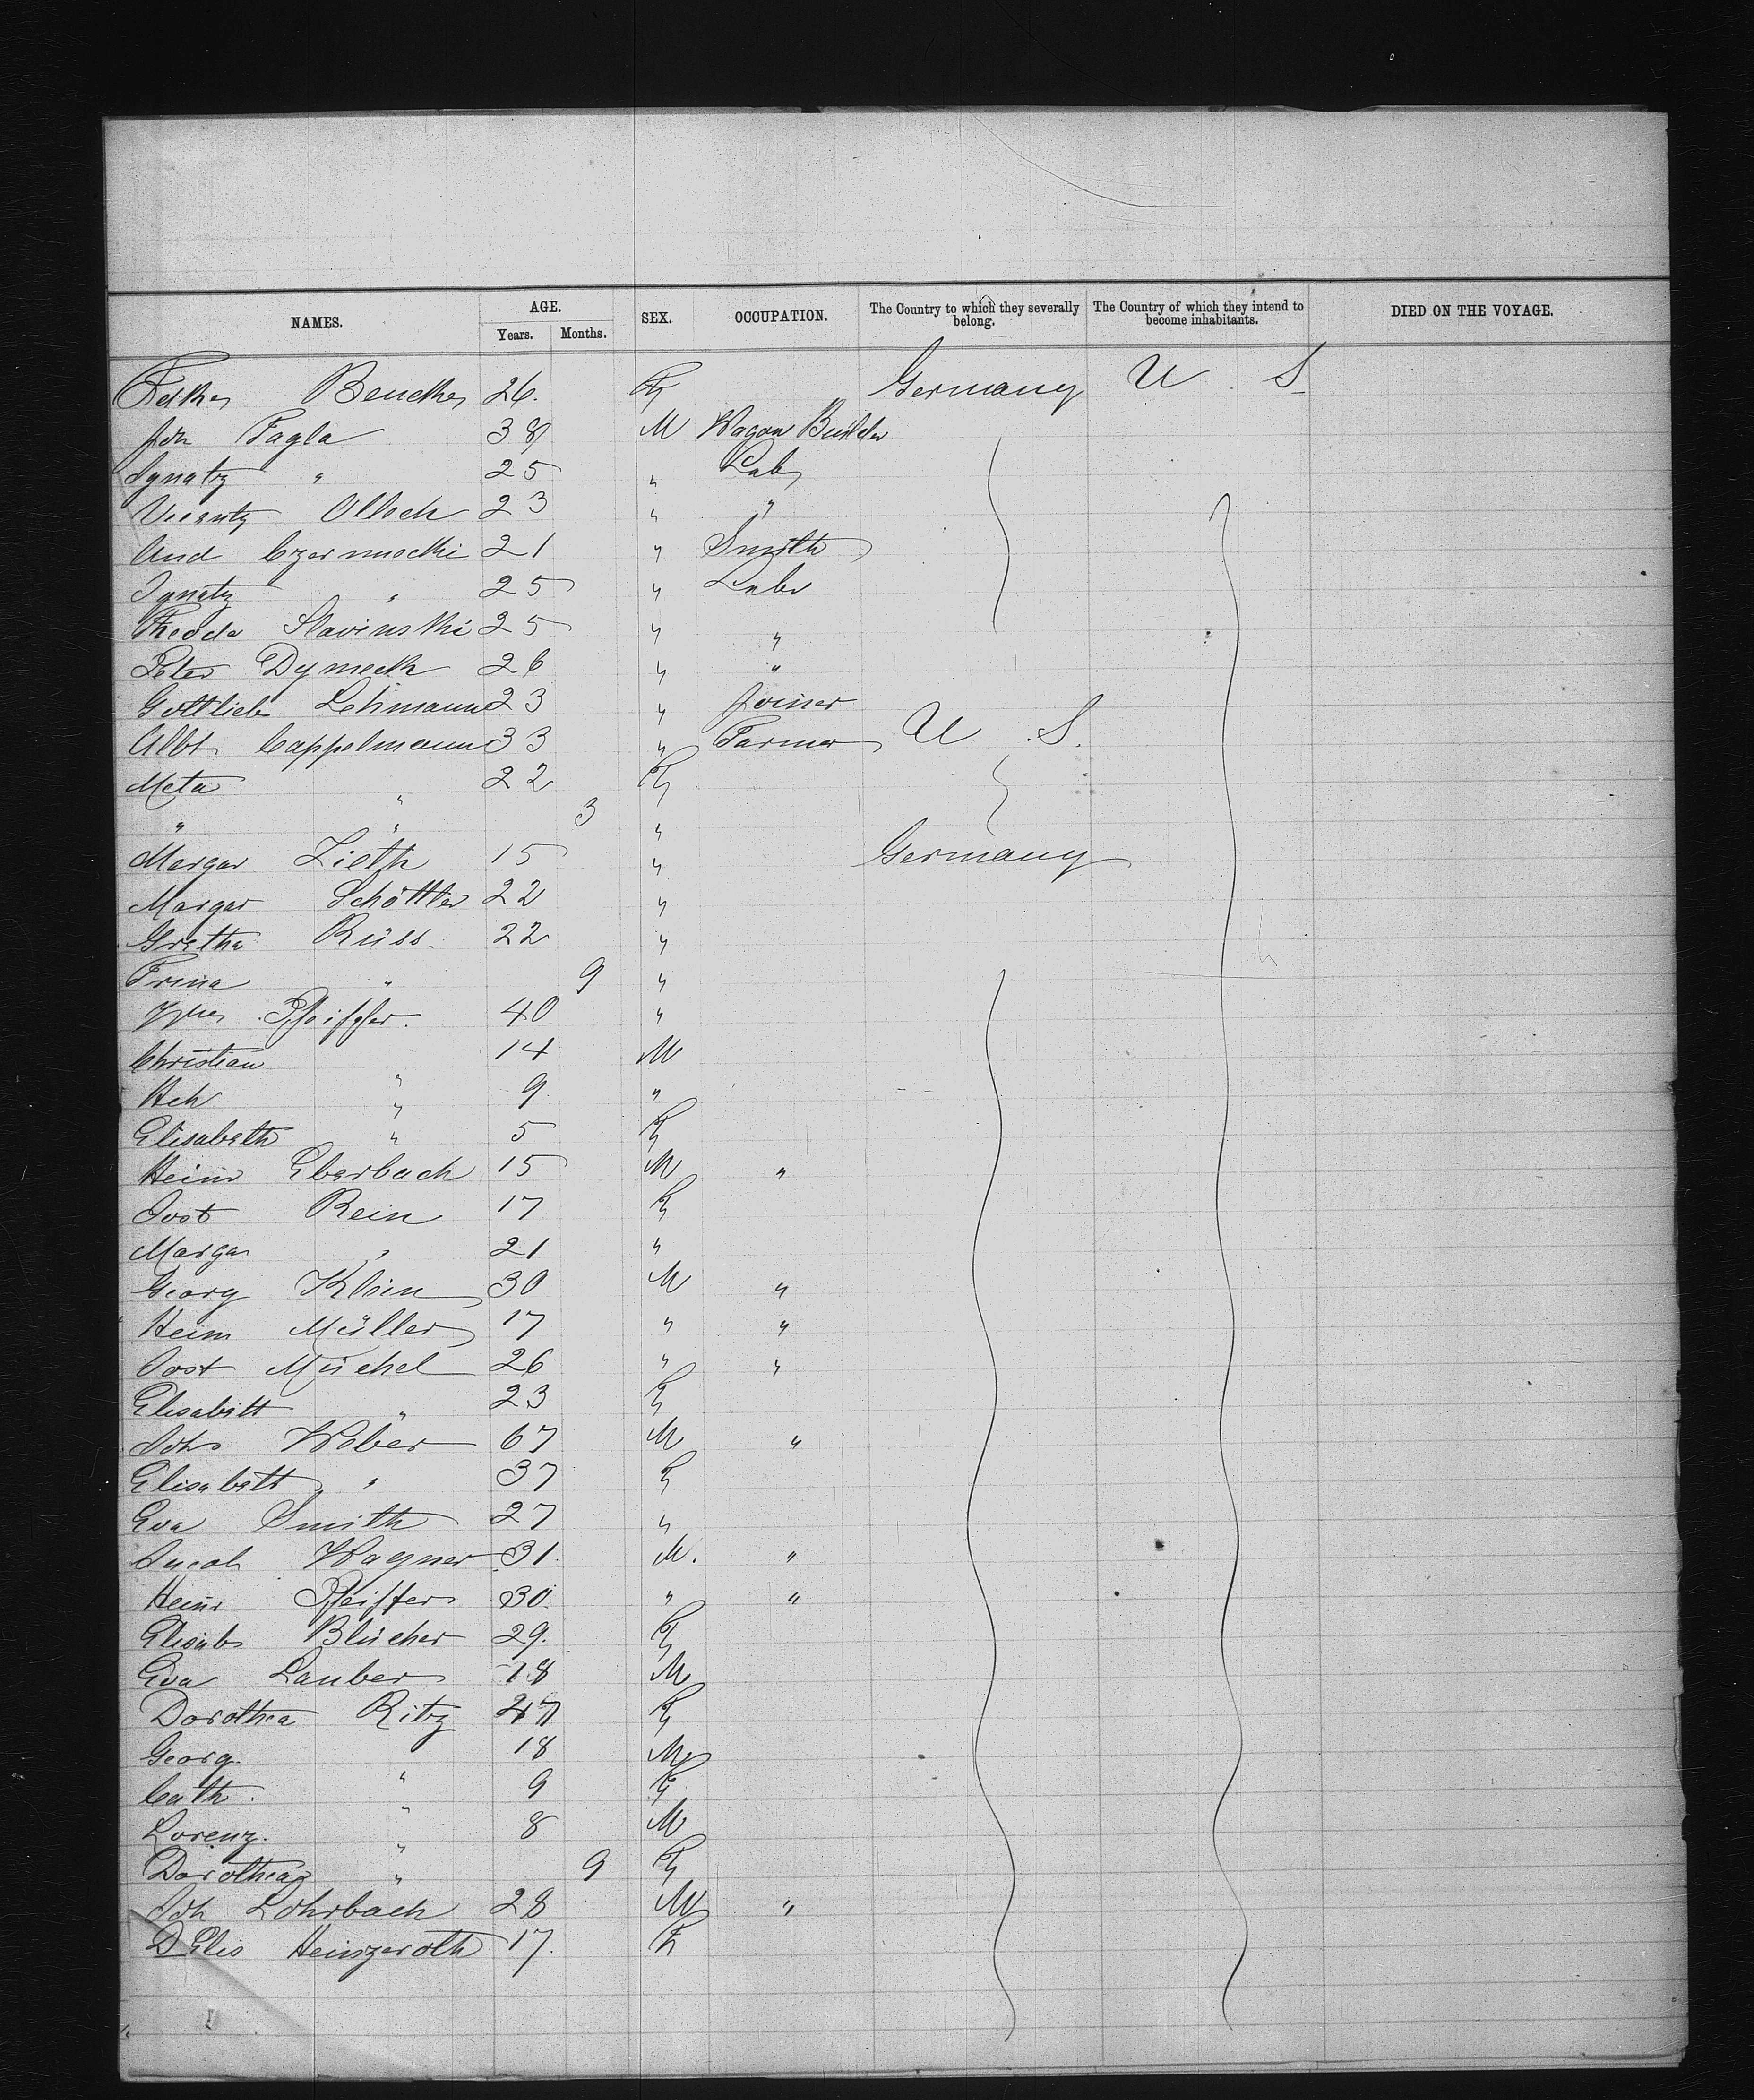 NAMES. AGE. SEX. OCCUPATION. The Country to which they severally belong. The Country of which they intend to become inhabitants. DIED ON THE VOYAGE.
Years. Months.
Folke Benecke 26. F Germany U. S.
Joh Fagla 38 M Wagon Builder
Ignatz " 25 " Lab
Vicenty Olloch 23 " "
And Czernuscki 21 " Smith
Ignatz " 25 " Labr
Theoda Slavinski 25 " "
Peter Dymeck 26 " "
Gottlieb Lehmann 23 " Joiner
Albt Cappelmann 33 " Farmer U. S.
Meta " 22 F
" " 3 "
Margar Zieth 15 " Germany
Margar Schöttler 22 "
Gretha Rüss. 22 "
Trina " 9 "
Pfeiffer. 40 "
Christian " 14 M
Hch " 9. "
Elisabeth " 5 F
Heinr Eberbach 15 M "
Jost Rein 17 F
Margar " 21 "
Georg Klein 30 M "
Heinr Müller 17 " "
Jost Müchel 26 " "
Elisabett " 23 F
Johs Weber 67 M "
Elisabett " 37 F
Eva Smith 27 "
Jacob Wagner 31. M. "
Heinr Pfeiffer 30. " "
Elisab Blücher 29. F
Eva Lauber 18 M
Dorothea Ritz 47 F
Georg. " 18 M
Cath. " 9 F
Lorenz. " 8 M
Dorothea " 9 F
Joh Lohrbach 28 M "
D Elis Heinzeroth 17. F